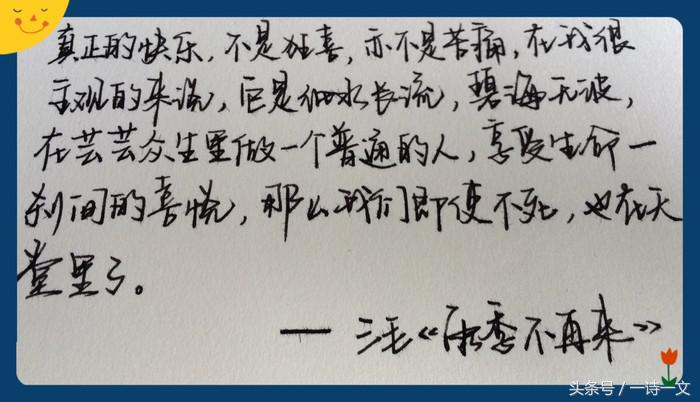 真正的快乐，不是狂喜，亦不是苦痛，在我很
主观的来说，它是细水长流，碧海无波，
在芸芸众生里做一个普通的人，享受生命一
刹间的喜悦，那么我们即使不死，也在天
堂里了。
—— 三毛《雨季不再来》
头条号 / 一诗一文